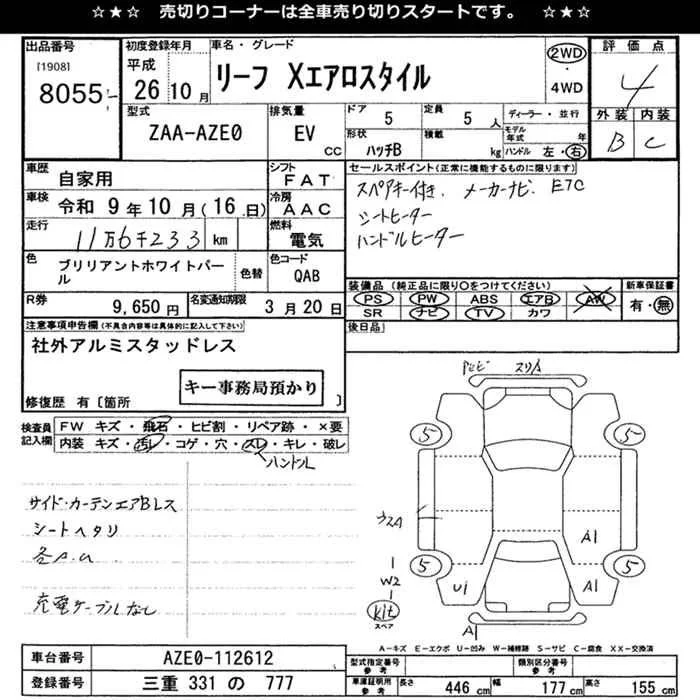 ☆★☆ 売切りコーナーは全車売り切りスタートです。 ☆★☆
出品番号
[1908]
8055
初度登録年月
平成
26年10月
車名・グレード
リーフ Xエアロスタイル
2WD
・
4WD
評価点
4
外装 内装
B C
型式
ZAA-AZE0
排気量
EV
CC
ドア
5
定員
5人
形状
ハッチB
積載
kg
ディーラー・並行
モデル年式 年
ハンドル 左・右
車歴
自家用
シフト
FAT
車検
令和 9年10月(16日)
冷房
AAC
走行
11万6千233km
燃料
電気
色
ブリリアントホワイトパール
色替
色コード
QAB
R券
9,650円
名変通知期限
3月20日
セールスポイント(正常に機能するものに限ります)
スペアキー付き、メーカーナビ、ETC
シートヒーター
ハンドルヒーター
装備品(純正品に限り〇をつけてください)
PS PW ABS エアB AW
SR ナビ TV カワ
新車保証書
有・無
後日品
注意事項申告欄(不具合内容等は具体的に記入して下さい)
社外アルミスタッドレス
キー事務局預かり
修復歴 有〔箇所 〕
検査員記入欄
FW キズ・飛石・ヒビ割・リペア跡・×要
内装 キズ・汚レ・コゲ・穴・スレ・キレ・破レ
ハンドル
サイド・カーテンエアBレス
シートヘタリ
充電ケーブルなし
スリA
5
5
A1
W2
5
5
U1
A1
kit
スペア
A1
A-キズ E-エクボ U-凹み W-補修跡 S-サビ C-腐食 XX-交換済
車台番号
AZE0-112612
登録番号
三重 331 の 777
型式指定番号
参考
類別区分番号
参考
車庫証明用
参考
長さ 446cm
幅 177cm
高さ 155cm